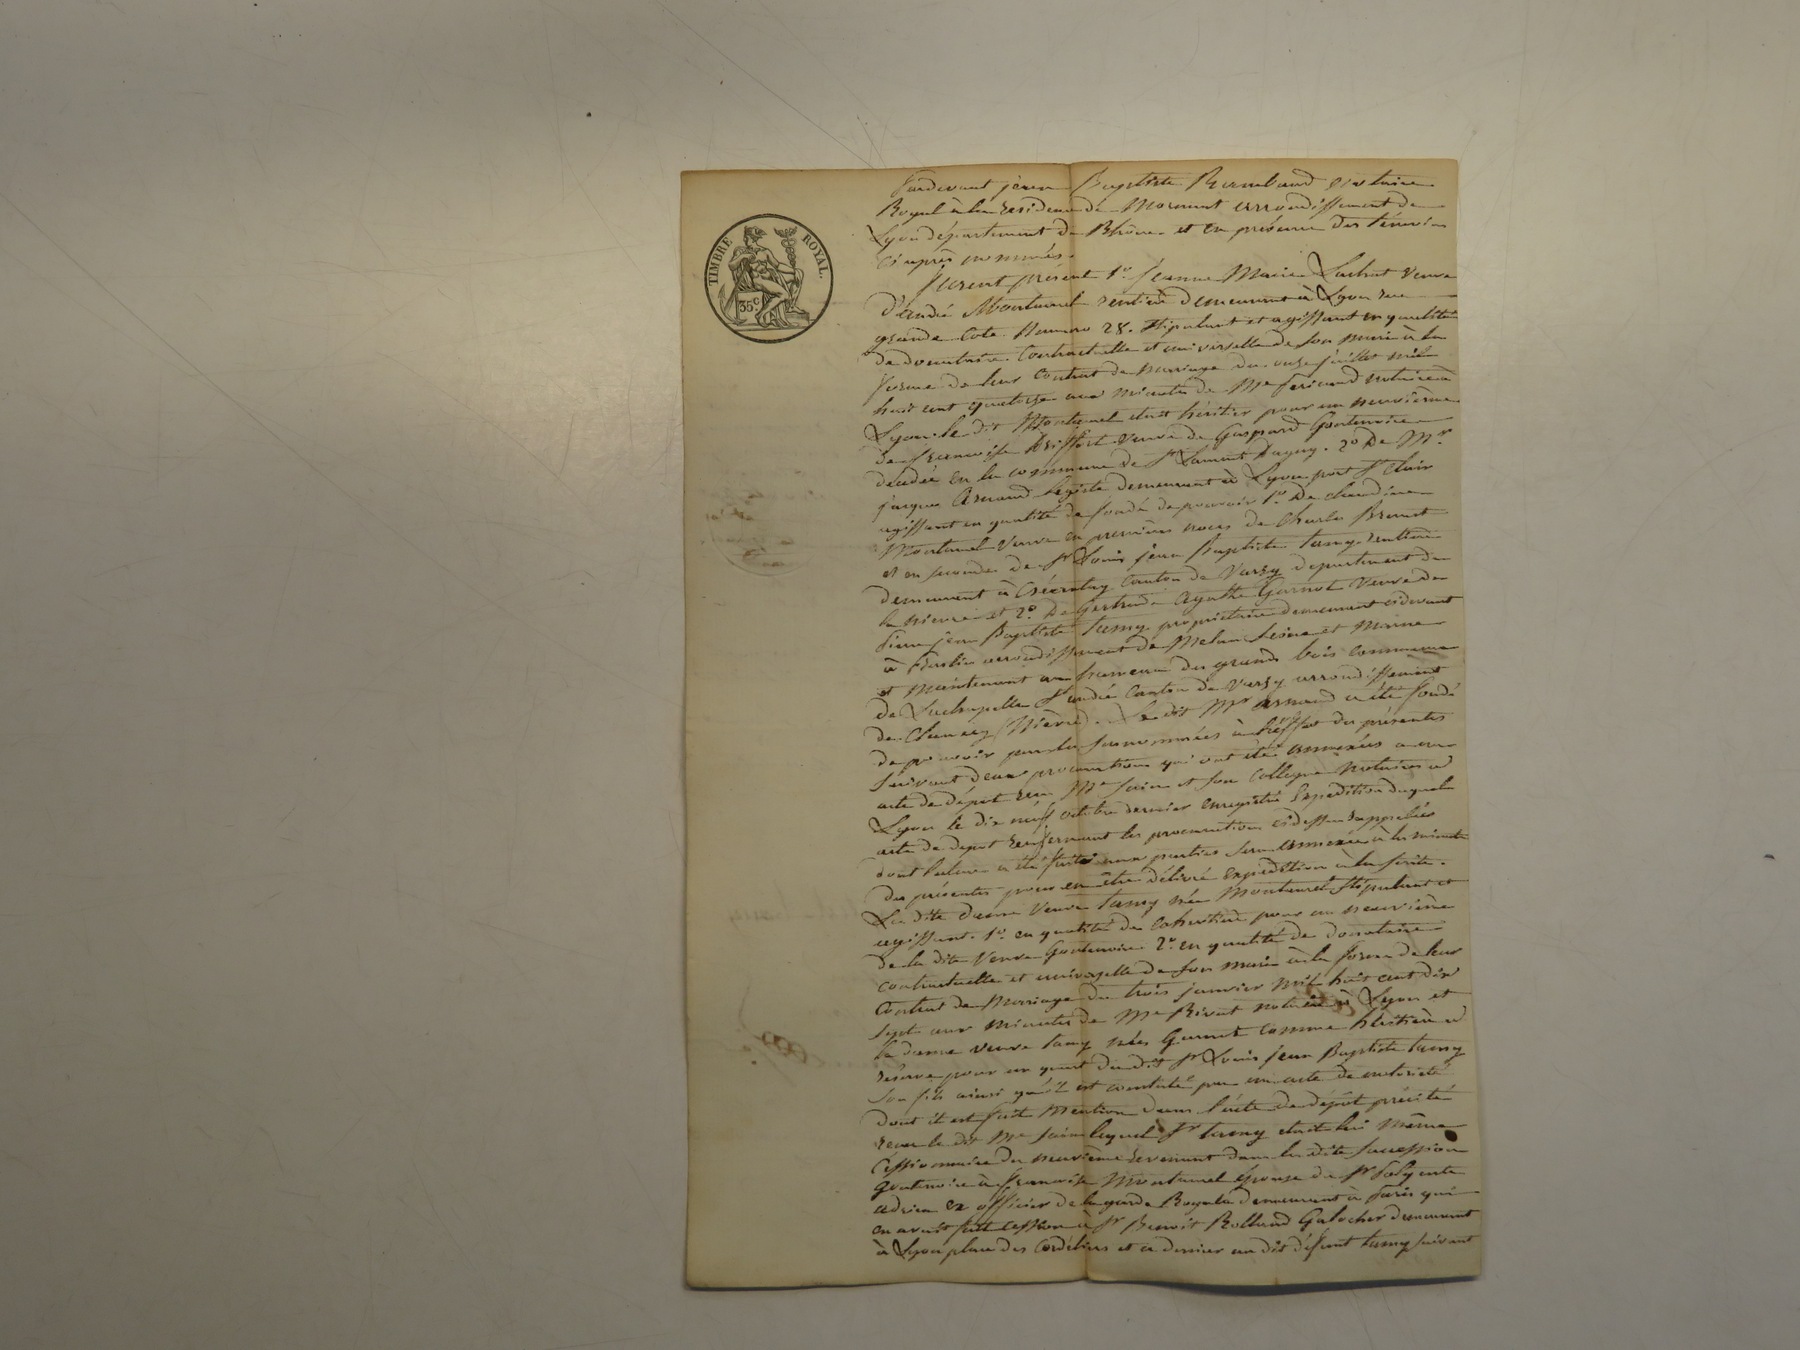 TIMBRE ROYAL.
35 c.
Pardevant jean Baptiste Rambaud notaire
Royal à la residence de Mornant arrondissement de
Lyon département du Rhône et en présence des témoins
ci après nommés.
Furent présent 1° Jeanne Marie veuve
d'andré Montanel rentière demeurant à Lyon rue
grande Cote Numero 28. Stipulant et agissant en qualité
de donataire Contractuelle et universelle de son mari à la
forme de leur Contrat de mariage du onze juillet mil
huit cent quatorze aux minutes de Me notaire à
Lyon le dit Montanel etait héritier pour un neuvième
de francoise veuve de Gaspard Goutenoire
decedée en la commune de St Laurent Dagny. 2° De Mr
jacques Arnaud Légiste demeurant à Lyon port St Clair
agissant en qualité de fondé de pouvoir 1° De claudine
Montanel veuve en premières noces de Charles
et en secondes de Sr Louis jean Baptiste tamy rentière
demeurant à Canton de Varzy departement de
la nievre et 2° De Gertrude Agathe Garnot veuve de
pierre jean Baptiste tamy propriétaire demeurant cidevant
à arrondissement de Melun Seine et Marne
et maintenant au hameau des grands bois commune
de Lachapelle St andré Canton de Varzy arrondissement
de Clamecy (Nièvre). Le dit Mr Arnaud a été fondé
de pouvoir par les susnommées à l'effet des présentes
suivant deux procurations qui ont été annexées a un
acte de dépot reçu Me et son Collegue notaires a
Lyon le dix neuf octobre dernier enregistré Expedition duquel
acte de depot renfermant les procurations cidessus rappelées
dont lecture a été faite aux parties sera annexée à la minute
des présentes pour en être délivré expédition à la suite.
La dite dame veuve tamy née Montanel stipulant et
agissant. 1° en qualité de Cohéritière pour un neuvième
de la dite Veuve Goutenoire 2° en qualité de donataire
contractuelle et universelle de son mari à la forme de leur
Contrat de Mariage du trois janvier mil huit cent dix
sept aux minutes de Me notaire à Lyon et
la dame veuve tamy née Garnot comme héritière a
réserve pour un quart du dit Sr Louis jean Baptiste tamy
son fils ainsi qu'il est constaté par un acte de notoriété
dont il est fait mention dans l'acte de dépôt précité
reçu le dit Me lequel Sr tamy etait lui même
Cessionnaire du neuvième revenant dans la dite succession
goutenoire à francoise Montanel épouse de Sr
adrien ex officier de la garde Royale demeurant à Paris qui
en avait fait cession à Sr Benoit Rolland Galocher demeurant
à Lyon place des Cordeliers et ce dernier au dit défunt tamy suivant